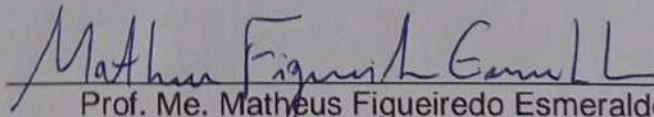 Matheus Figueiredo Esmeraldo
Prof. Me. Matheus Figueiredo Esmeraldo